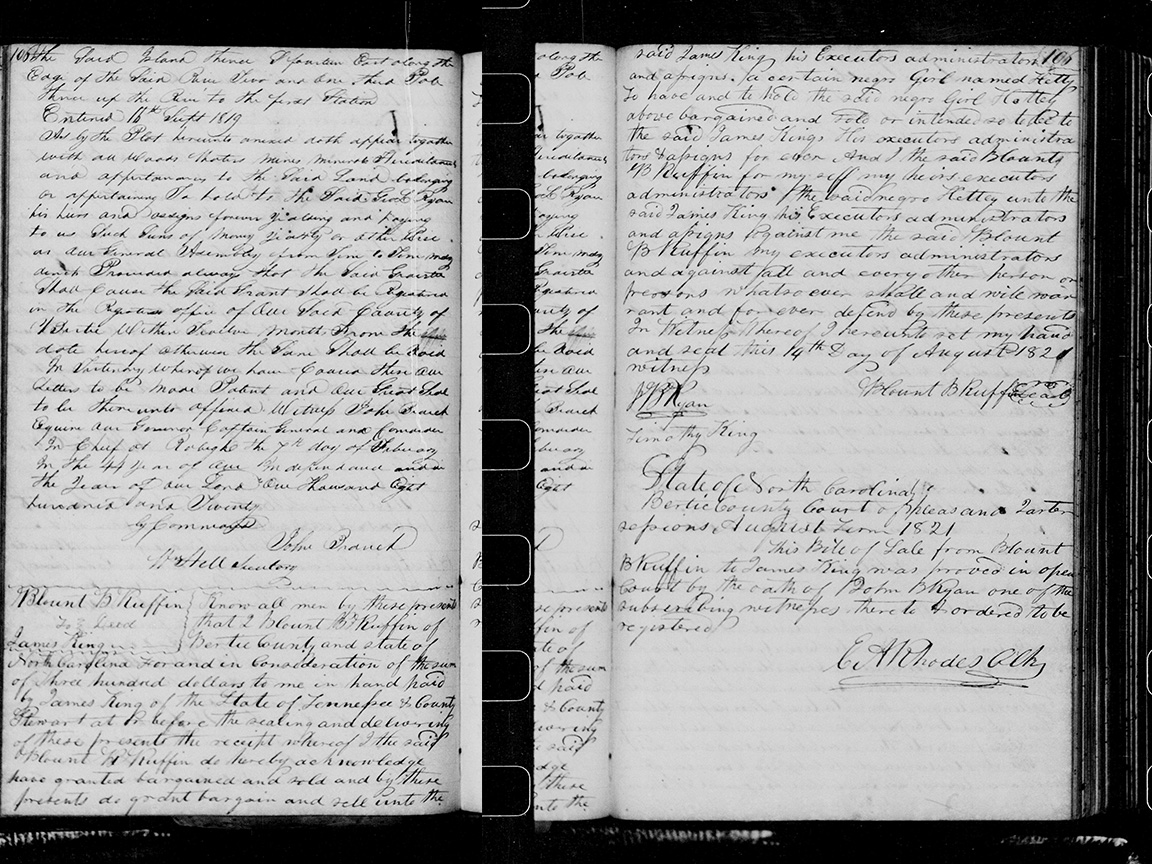 106 the Said Island thence Fourteen East along the
Edge of the Said River Two and One third Pole
thence up the River to the first Station
Entered 16th Sept 1819
As by the Plat hereunto anexed doth appear together
with all Woods Waters Mines Minerals Hereditaments
and appurtenances to the Said Land belonging
or appertaining To hold to the Said Geo L Ryan
his heirs and assigns forever Yielding and paying
to us Such Sums of Money Yearly or otherwise
as our General Assembly from Time to Time may
direct Provided always that the Said Grantee
Shall Cause the Said Grant Shall be Registered
in the Registers office of Our Said County of
Bertie Within Twelve Months From the
date hereof otherwise the Same Shall be Void
In Testimony Whereof we have Caused these Our
Letters to be Made Patent and Our Great Seal
to be thereunto affixed Witness John Branch
Equire our Governor Captain General and Comander
In Chief at Raleigh the 7th day of February
In the 44 year of our Independance and in
The Year of our Lord One Thousand Eght
hundred and Twenty
By Command
John Branch
Wm Hill Secretary
Blount B Ruffin Know all men by these presents
To Deed that I Blount B Ruffin of
James King Bertie County and state of
North Carolina For and in Consideration of the sum
of three hundred dollars to me in hand paid
by James King of the State of Tennessee & County
Stewart at or before the sealing and delivering
of these presents the receipt whereof I the said
Blount B Ruffin do hereby acknowledge
have granted bargained and sold and by these
presents do grant bargain and sell unto the
along the
Pole
together
Hereditaments
belonging
L Ryan
paying
otherwise
Time may
Grantee
Registered
County of
the
be Void
Our
Great Seal
Branch
Comander
February
and in
Eght
these presents
Ruffin of
state of
of the sum
paid
& County
delivering
the said
these
unto the
said James King his Executors administrators 106
and assigns. a certain negro Girl named Hettey
To have and to hold the said negro Girl Hettey
above bargained and sold or intended so to be to
the said James Kings His executors administra
tors & assigns for ever And I the said Blount
B Ruffin for my self my heirs executors
administrators the said negro Hettey unto the
said James King his Executors administrators
and assigns against me the said Blount
B Ruffin my executors administrators
and against all and every other person or
persons whatsoever shall and will war
rant and for ever defend by these presents
In Witness Whereof I hereunto set my hand
and seal this 14th Day of August 1821
witness
Blount B Ruffin Seal
J B Ryan
Timothy King
State of North Carolina
Bertie County Court of Pleas and Quarter
sessions August Term 1821
This Bill of Sale from Blount
B Ruffin to James King was proved in open
Court by the oath of John B Ryan one of the
subscribing witnesses thereto & ordered to be
registered
E A Rhodes Clk